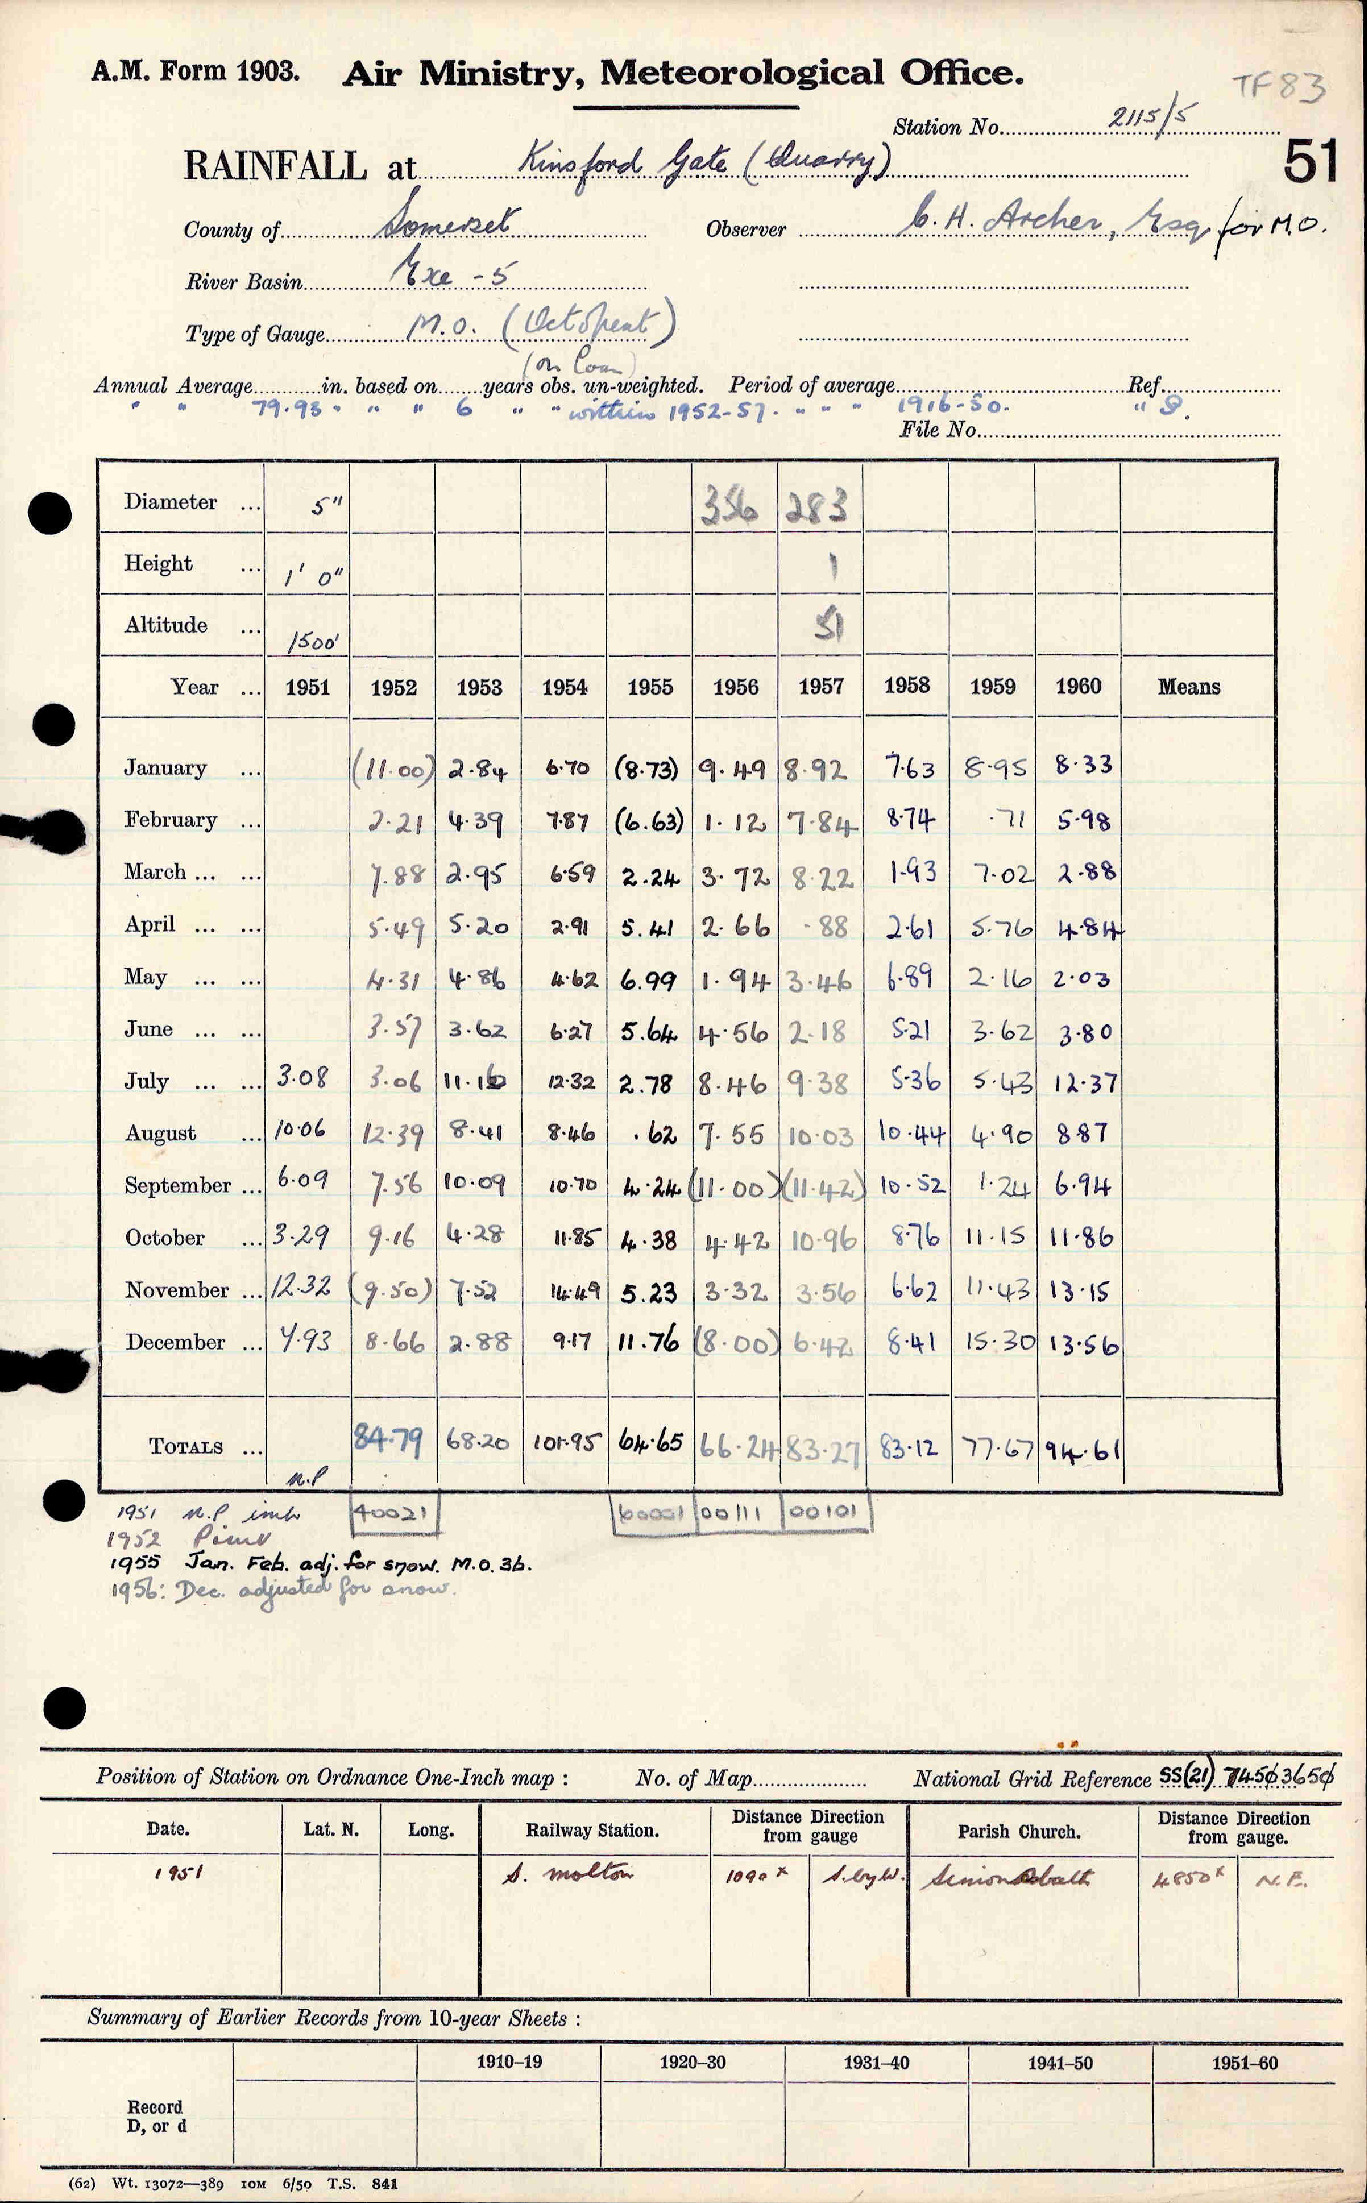 A.M. Form 1903. Air Ministry, Meteorological Office. TF83
Station No. 2115/5
51
RAINFALL at Kinsford Gate (Quarry)
County of Somerset Observer C. H. Archer, Esq for M.O.
River Basin Exe - 5
Type of Gauge M.O. (Octapent)
(on Loan)
Annual Average in. based on years obs. un-weighted. Period of average Ref.
" " 79.93 " " " 6 " " within 1952-57. " " " 1916-50. " S.
File No.
Diameter ... 5" 356 283
Height ... 1' 0" 1
Altitude ... 1500' 51
Year ... 1951 1952 1953 1954 1955 1956 1957 1958 1959 1960 Means
January ... (11.00) 2.84 6.70 (8.73) 9.49 8.92 7.63 8.95 8.33
February ... 2.21 4.39 7.87 (6.63) 1.12 7.84 8.74 .71 5.98
March ... ... 7.88 2.95 6.59 2.24 3.72 8.22 1.93 7.02 2.88
April ... ... 5.49 5.20 2.91 5.41 2.66 .88 2.61 5.76 4.84
May ... ... 4.31 4.86 4.62 6.99 1.94 3.46 6.89 2.16 2.03
June ... ... 3.57 3.62 6.27 5.64 4.56 2.18 5.21 3.62 3.80
July ... ... 3.08 3.06 11.16 12.32 2.78 8.46 9.38 5.36 5.43 12.37
August ... 10.06 12.39 8.41 8.46 .62 7.55 10.03 10.44 4.90 8.87
September ... 6.09 7.56 10.09 10.70 4.24 (11.00) (11.42) 10.52 1.24 6.94
October ... 3.29 9.16 4.28 11.85 4.38 4.42 10.96 8.76 11.15 11.86
November ... 12.32 (9.50) 7.52 14.49 5.23 3.32 3.56 6.62 11.43 13.15
December ... 7.93 8.66 2.88 9.17 11.76 (8.00) 6.42 8.41 15.30 13.56
TOTALS ... n.P 84.79 68.20 101.95 64.65 66.24 83.27 83.12 77.67 94.61
1951 n.P inch 40021 60001 00111 00101
1952
1955 Jan. Feb. adj. for snow. M.O.3b.
1956: Dec. adjusted for snow.
Position of Station on Ordnance One-Inch map : No. of Map National Grid Reference SS(21) 74503650
Date. Lat. N. Long. Railway Station. Distance from gauge Direction Parish Church. Distance from gauge. Direction
1951 S. Molton S. by W. 4850x N.E.
Summary of Earlier Records from 10-year Sheets :
1910–19 1920–30 1931–40 1941–50 1951–60
Record
D, or d
(62) Wt. 13072—389 10M 6/50 T.S. 841